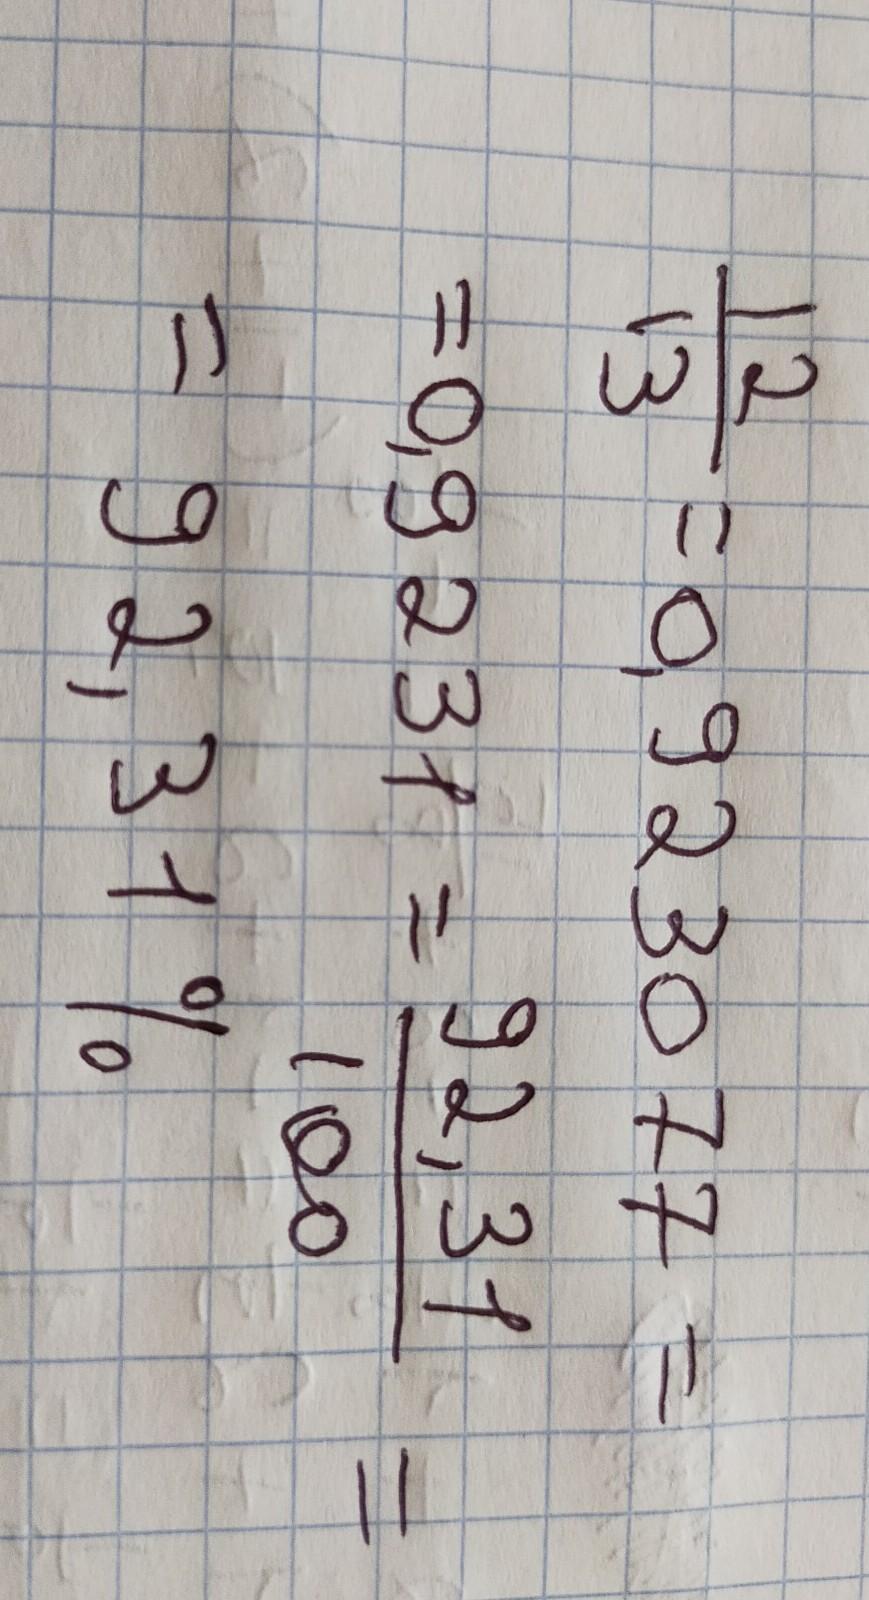 12/13 = 0,923077 =
= 0,9231 = 92,31/100 =
= 92,31%